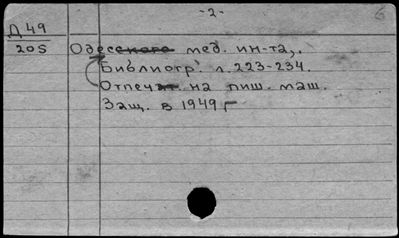 -2-
Д 49
205
Одесского мед. ин-та,.
Библиогр. л. 223-234.
Отпечат на пиш. маш.
Защ. в 1949 г